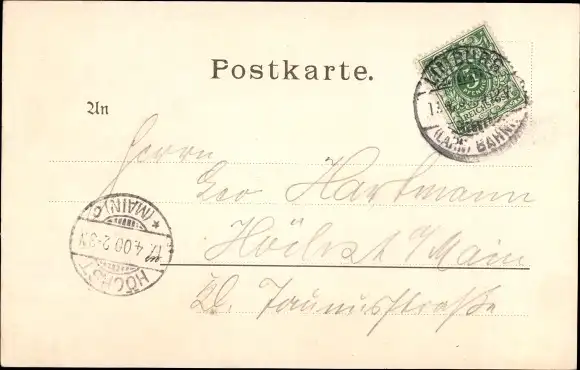 Postkarte.
LIMBURG
(LAHN) BAHNH.
An
Herrn
Geo Hartmann
Höchst a/Main
Kl. Taunusstraße
HÖCHST
(MAIN)
17.4.00.2-3N